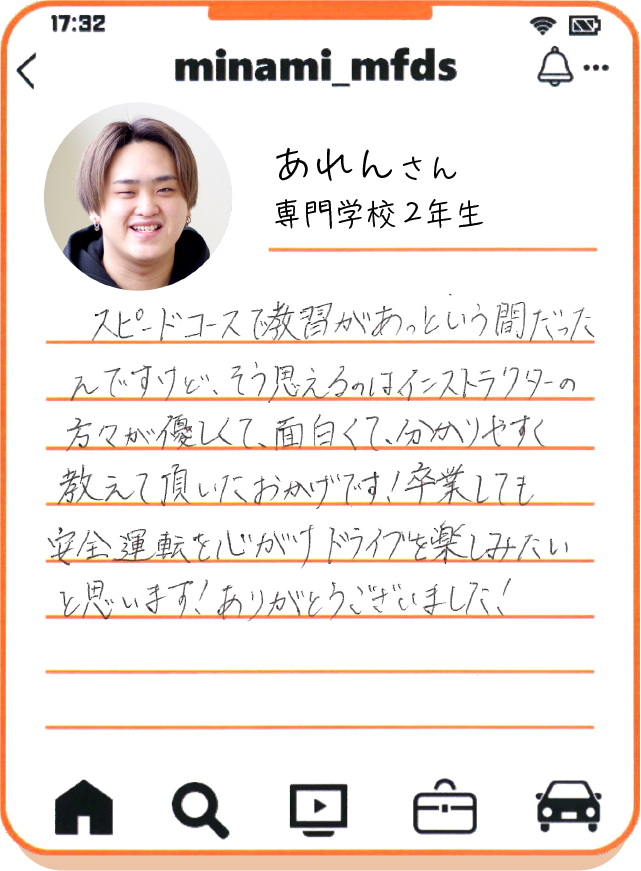 17:32
minami_mfds
あれんさん
専門学校2年生
スピードコースで教習があっという間だった
んですけど、そう思えるのはインストラクターの
方々が優しくて、面白くて、分かりやすく
教えて頂いたおかげです!卒業しても
安全運転を心がけドライブを楽しみたい
と思います!ありがとうございました!